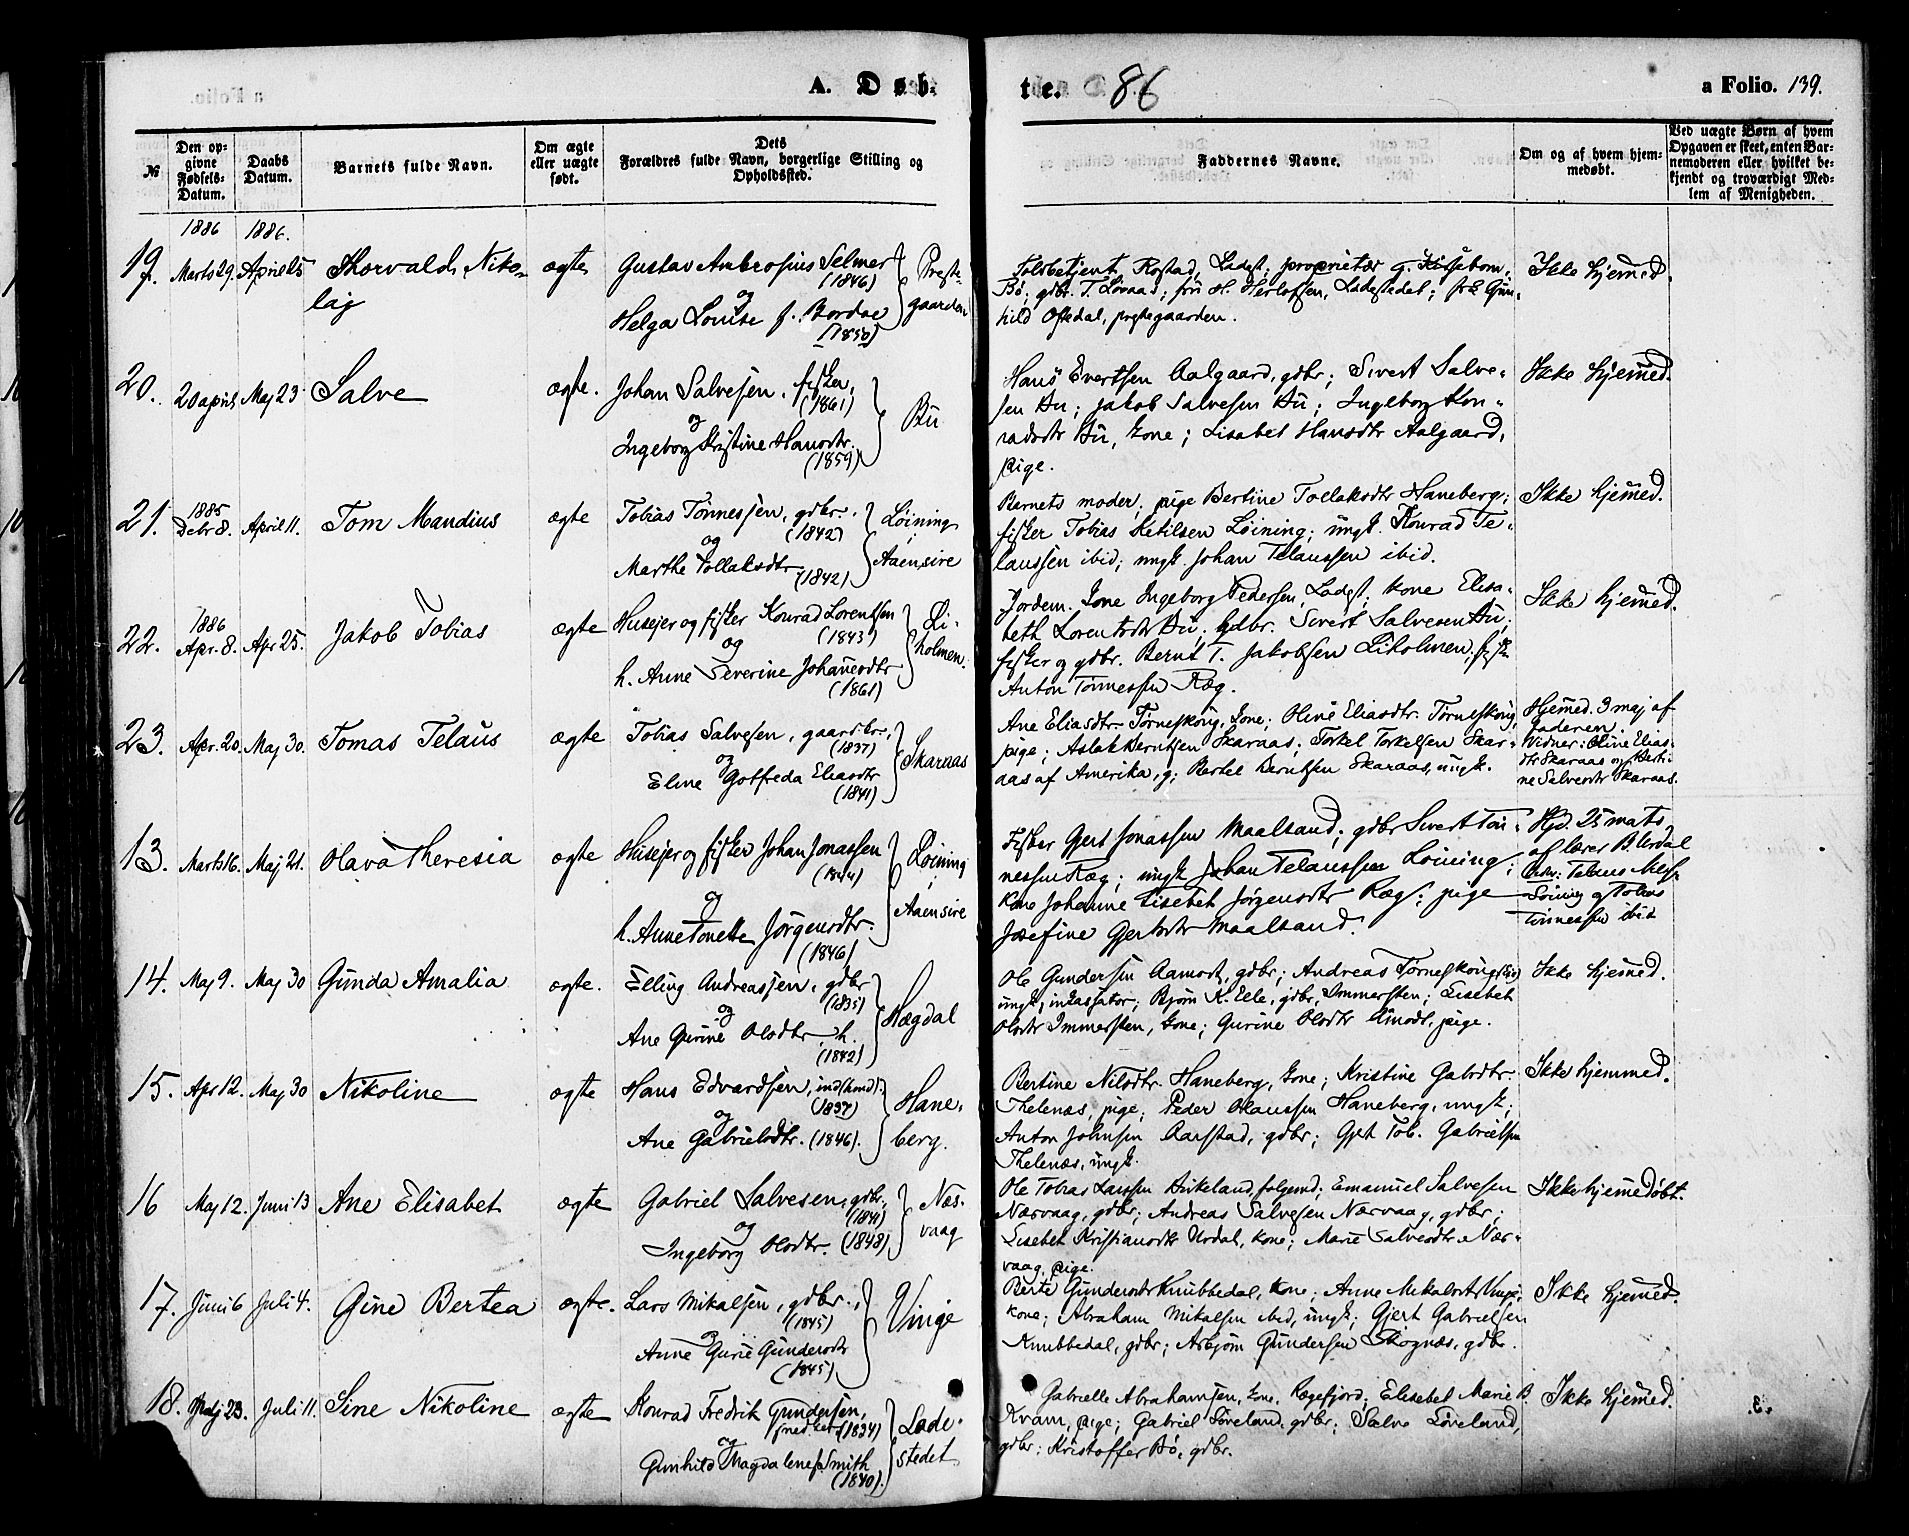 A. Døb-
te.
86
a Folio. 139.
№
Den op-
givne
Fødsels-
Datum.
Daabs
Datum.
Barnets fulde Navn.
Om ægte
eller uægte
født.
Dets
Forældres fulde Navn, borgerlige Stilling og
Opholdssted.
Faddernes Navne.
Om og af hvem hjem-
medøbt.
Ved uægte Børn af hvem
Opgaven er skeet, enten Bar-
nemoderen eller hvilket be-
kjendt og troværdigt Med-
lem af Menigheden.
1886 1886.
19. Marts 29. April 25 Thorvald Niko-
laj
ægte
Gustav Ambrosius Selmer
(1846)
og
Helga Louise f. Bordoe
(1850)
Prest-
gaarden
Toldbetjent Rostad, Ladest; proprietær G. Kirsebom,
Bø; gdbr. T. Lovaas; fru H. Herlofsen, Ladestedet; frk Gun-
hild Oftedal, prestegaarden.
Ikke hjemed.
20. 20 april Maj 23 Salve
ægte.
Johan Salvesen, fisker,
(1861)
og
Ingeborg Kristine Hansdtr.
(1859)
Bu
Hans Evertsen Aalgaard, gdbr; Sivert Salve-
sen Bu; Jakob Salvesen Bu; Ingeborg Kon-
radsdtr Bu, kone; Lisabet Hansdtr Aalgaard,
pige.
Ikke hjemed.
21. 1885
Debr 8. April 11. Tom Mandius
ægte
Tobias Tønnessen, gdbr.
(1842)
og
Marthe Tollaksdtr
(1842)
Løining
Aaensire
Barnets moder; pige Bertine Tollaksdtr Haneberg;
fisker Tobias Ketilsen Løining; ungk. Konrad Te-
laussen ibid; ungk. Johan Telaussen ibid.
Ikke hjemed.
22. 1886
Apr. 8. Apr 25. Jakob Tobias
ægte
Husejer og fisker Konrad Lorentsen
(1843)
og
h. Anne Severine Johannesdtr
(1861)
Li-
holmen.
Jordem. kone Ingeborg Pedersen, Ladest; kone Elisa-
beth Lorentsdtr Bu; gdbr. Sivert Salvesen Bu;
fisker og gdbr. Bernt T. Jakobsen Liholmen; fisk
Anton Tønnessen Ræg.
Ikke hjemed.
23. Apr. 20. Maj 30. Tomas Telaus
ægte
Tobias Salvesen, gaardbr,
(1837)
og
Eline Gotfreda Eliasdtr
(1841)
Skaraas
Ane Eliasdtr Tørneskoug, kone; Oline Eliasdtr. Tørneskoug,
pige; Aslak Berntsen Skaraas; Torkel Torkelsen Skar-
aas af Amerika, g; Bertel Berntsen Skaraas, ungk.
Hjemed. 3 maj af
faderen.
Vidner: Oline Elias-
dtr Skaraas og Berti-
ne Salvesdtr Skaraas.
13. Marts 16. Maj 21. Olava Theresia
ægte
Husejer og fisker Johan Jonassen
(1844)
og
h. Anne Tonette Jørgensdtr.
(1846)
Løining
Aaensire
Fisker Gjert Jonassen Maalsand; gdbr Sivert Tøn-
nessen Ræg; ungk Johan Telaussen Løining;
kone Johanne Lisebet Jørgensdtr Ræg; pige
Josefine Gjertsdtr Maalsand.
Hjd. 25 mats
af lærer B. Urdal
Vidn: Telaus
Løining og Tobias
Tønnessen ibid
14. Maj 9. Maj 30 Gunda Amalia
ægte.
Elling Andreassen, gdbr
(1835)
og
Ane Gurine Olsdtr h.
(1842)
Hægdal
Ole Gundersen Aamodt, gdbr; Andreas Tørneskoug
ungk, inkassator; Bjørn K. Eele, gdbr, Immersten; Lisebet
Olsdtr Immersten, kone; Gurine Olsdtr Amodt, pige.
Ikke hjemed.
15. Apr 12. Maj 30 Nikoline
ægte
Hans Edvardsen, indsk
(1837)
og
Ane Gabrielsdtr. (1846).
Hane-
berg.
Bertine Nilsdtr. Haneberg, kone; Kristine Gabrdtr.
Thelenæs, pige; Peder Olaussen Haneberg, ungk;
Anton Johnsen Aarstad, gdbr; Gjert Tob. Gabrielsen
Thelenæs, ungk.
Ikke hjemmed.
16 Maj 12. Juni 13 Ane Elisabet
ægte
Gabriel Salvesen, gdbr,
(1841)
og
Ingeborg Olsdtr. (1848)
Næs-
vaag
Ole Tobias Larssen Birkeland, folgemd; Emanuel Salvesen
Nærvaag, gdbr; Andreas Salvesen Nærvaag, gdbr;
Lisebet Kristiansdtr Urdal, kone; Marie Salvesdtr Nær-
vaag, pige.
Ikke hjemedøbt.
17. Juni 6 Juli 4. Gine Bertea
ægte.
Lars Mikalsen, gdbr.,
(1845)
og
Anne Gurie Gundersdtr
(1845)
Vinge
Berte Gundersdtr Knubbedal, kone; Anne Mikalsdtr Vinge,
kone; Abraham Mikalsen ibid, ungk; Gjert Gabrielsen
Knubbedal, gdbr; Asbjørn Gundersen Skognæs, gdbr.
Ikke hjemed.
18. Maj 23. Juli 11. Sine Nikoline
ægte
Konrad Fredrik Gundersen,
(1834)
og
Gunhild Magdalene f. Smith
(1840).
Lade-
stedet
Gabrielle Abrahamsen, kone, Rægefjord; Elisebet Marie B.
Kvam, pige; Gabriel Løveland, gdbr; Salve Løveland,
gdbr; Kristoffer Bø, gdbr.
Ikke hjemed.